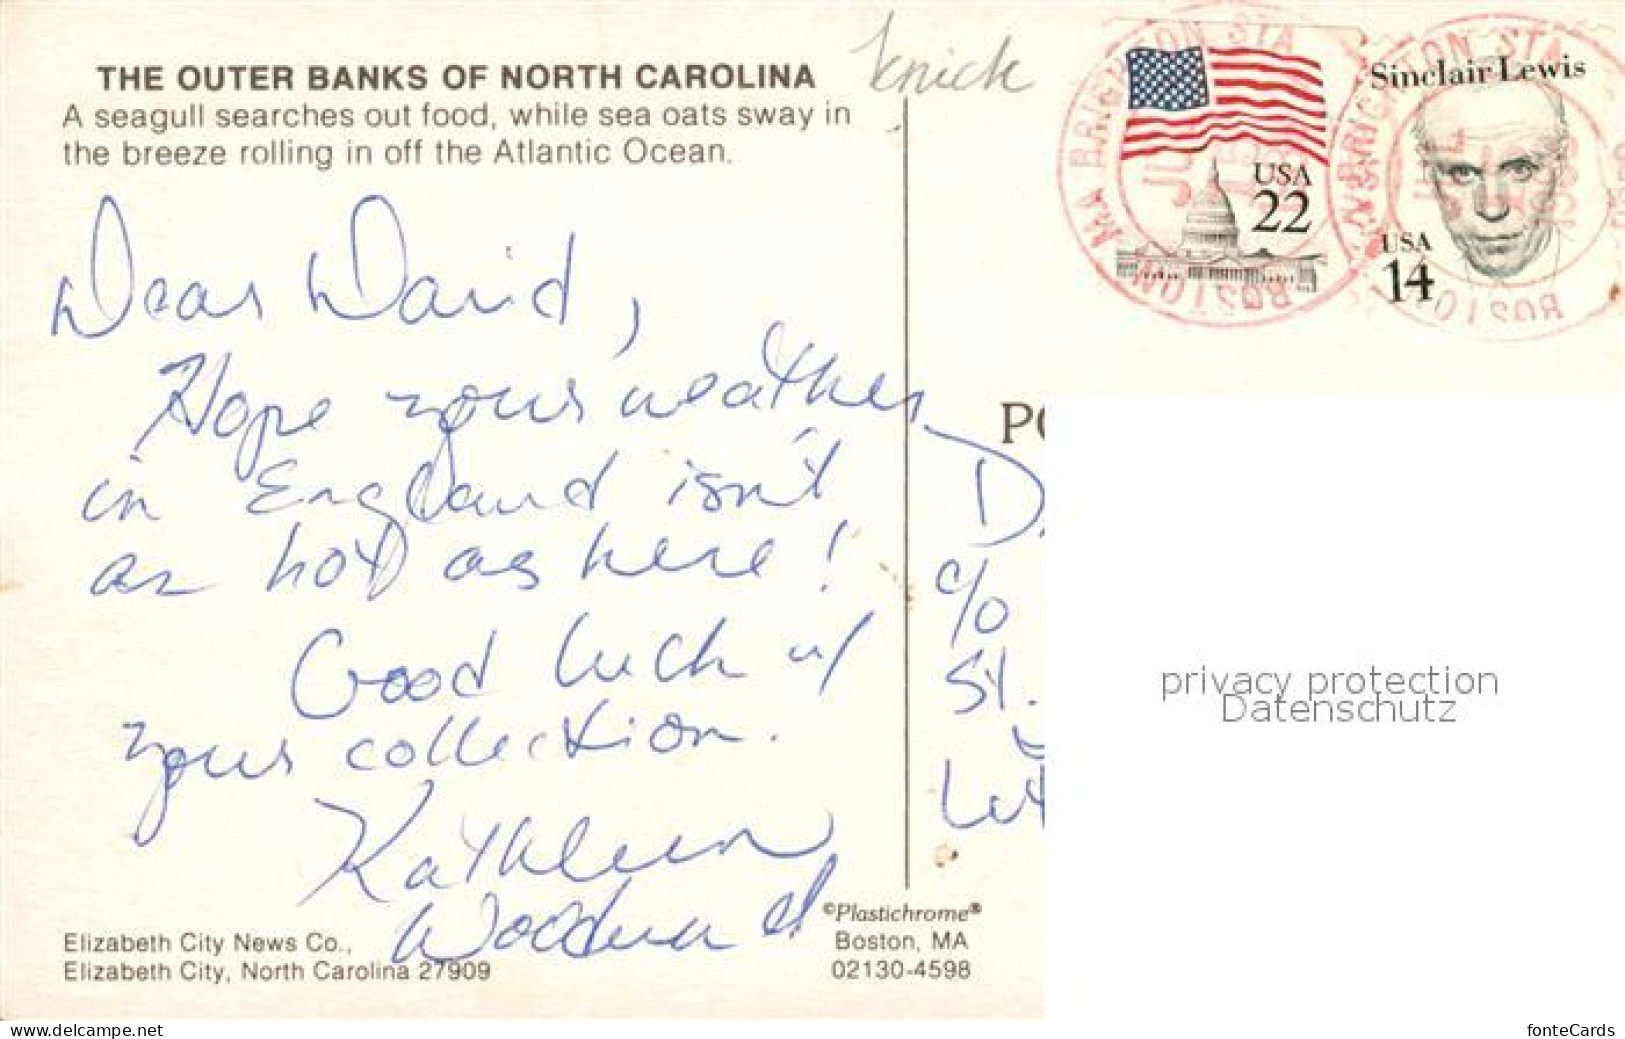 THE OUTER BANKS OF NORTH CAROLINA
A seagull searches out food, while sea oats sway in
the breeze rolling in off the Atlantic Ocean.
Dear David,
Hope your weather
in England isn't
as hot as here!
Good luck w/
your collection.
Kathleen
Woodward
Elizabeth City News Co.,
Elizabeth City, North Carolina 27909
©Plastichrome®
Boston, MA
02130-4598
knick
USA
22
Sinclair Lewis
USA
14
MA BRIGHTON STA
BOSTON
BRIGHTON STA
BOSTON
PO
D.
c/o
St.
privacy protection
Datenschutz
www.delcampe.net
fonteCards